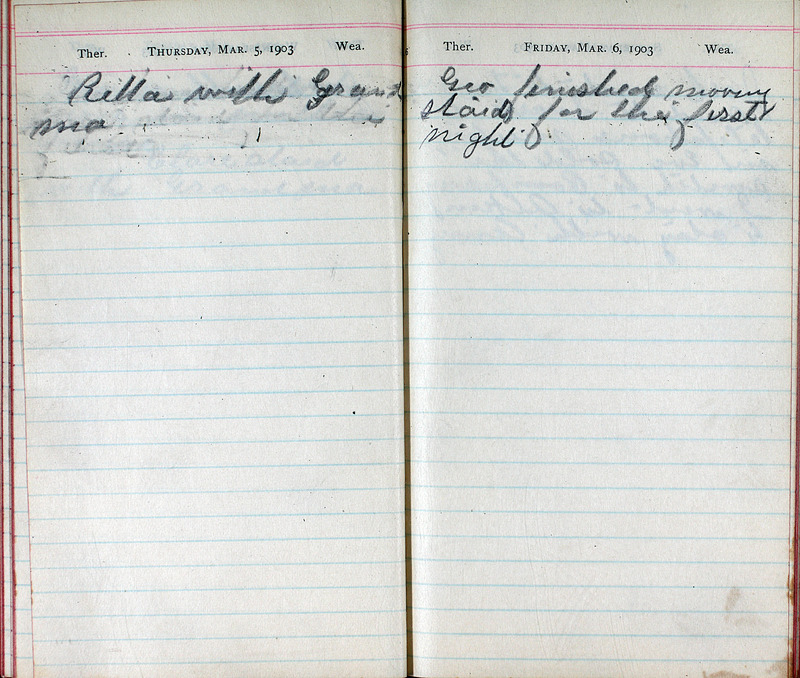 Ther. THURSDAY, MAR. 5, 1903 Wea.
Rilla with Grand
ma
Ther. FRIDAY, MAR. 6, 1903 Wea.
Geo finished moving
staid for the first
night